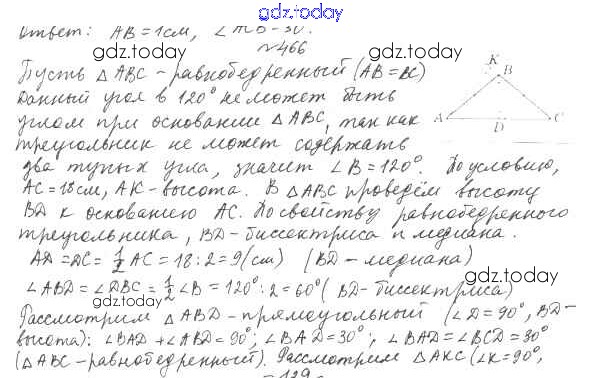 gdz.today
Ответ: AB = 1 см,
gdz.today gdz.today
№466
Пусть △ABC - равнобедренный (AB = BC)
Данный угол в 120° не может быть
углом при основании △ABC, так как
треугольник не может содержать
два тупых угла, значит ∠B = 120°. По условию,
AC = 18 см, AK - высота. В △ABC проведём высоту
BD к основанию AC. По свойству равнобедренного
треугольника, BD - биссектриса и медиана.
AD = DC = 1/2 AC = 18 : 2 = 9 (см) (BD - медиана)
gdz.today
∠ABD = ∠DBC = 1/2 ∠B = 120° : 2 = 60° (BD - биссектриса)
gdz.today
Рассмотрим △ABD - прямоугольный (∠D = 90°, BD -
высота): ∠BAD + ∠ABD = 90°; ∠BAD = 30°; ∠BAD = ∠BCD = 30°
(△ABC - равнобедренный). Рассмотрим △AKC (∠K = 90°,
K
B
A
D
C
gdz.today
gdz.today